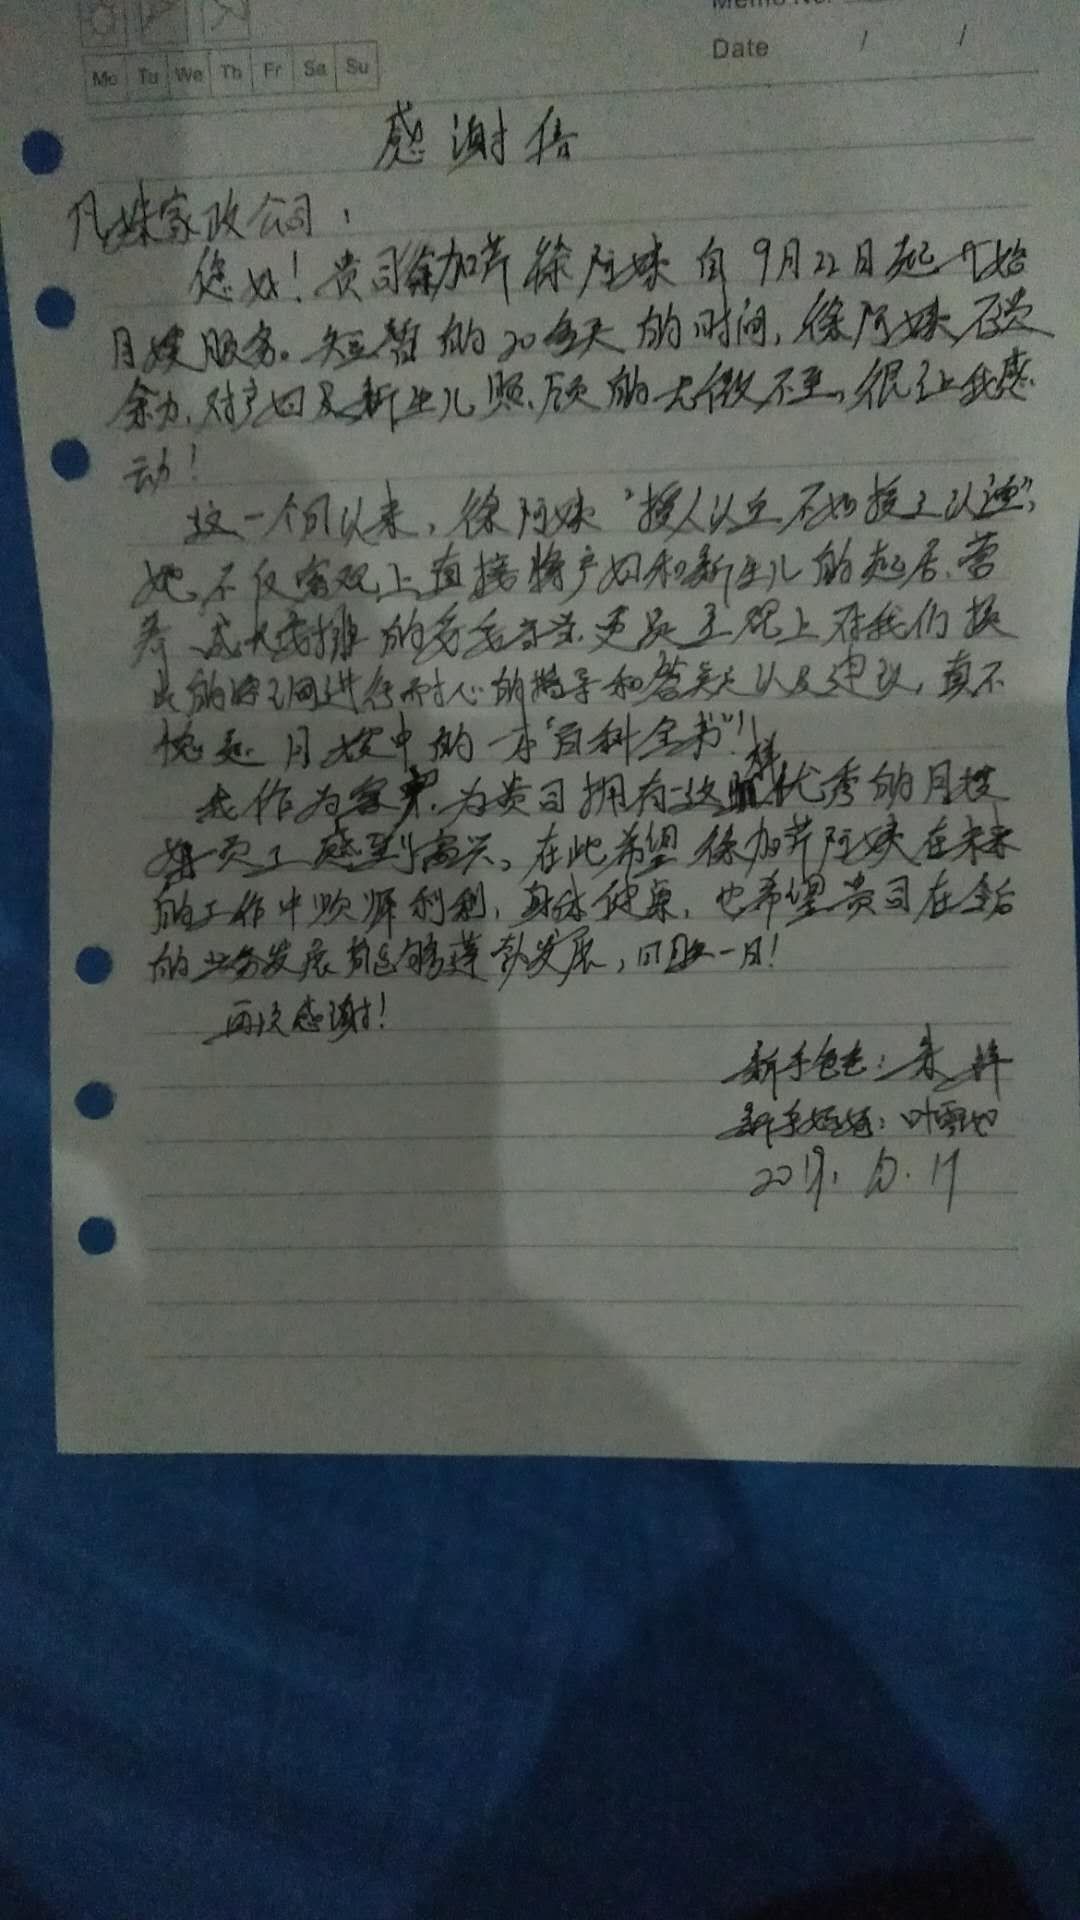 Memo No.
Date / /
Mo Tu We Th Fr Sa Su
感谢信
凡妹家政公司：
您好！贵司徐加芹徐阿妹自9月22日起开始
月嫂服务。短暂的20多天的时间，徐阿妹不遗
余力，对产妇及新生儿照顾的无微不至，很让我感
动！
这一个月以来，徐阿妹“授人以鱼不如授之以渔”，
她不仅客观上直接将产妇和新生儿的起居、营
养、安排的妥妥当当，更是主观上对我们提
出的疑问进行耐心的指导和答疑以及建议，真不
愧是月嫂中的一本“百科全书”！
我作为客户，为贵司拥有这样优秀的月嫂
员工感到高兴。在此希望徐加芹阿妹在未来
的工作中顺顺利利，身体健康，也希望贵司在今后
的业务发展能够蓬勃发展，日胜一日！
再次感谢！
新手爸爸：朱
新手妈妈：叶雪
2017.10.17